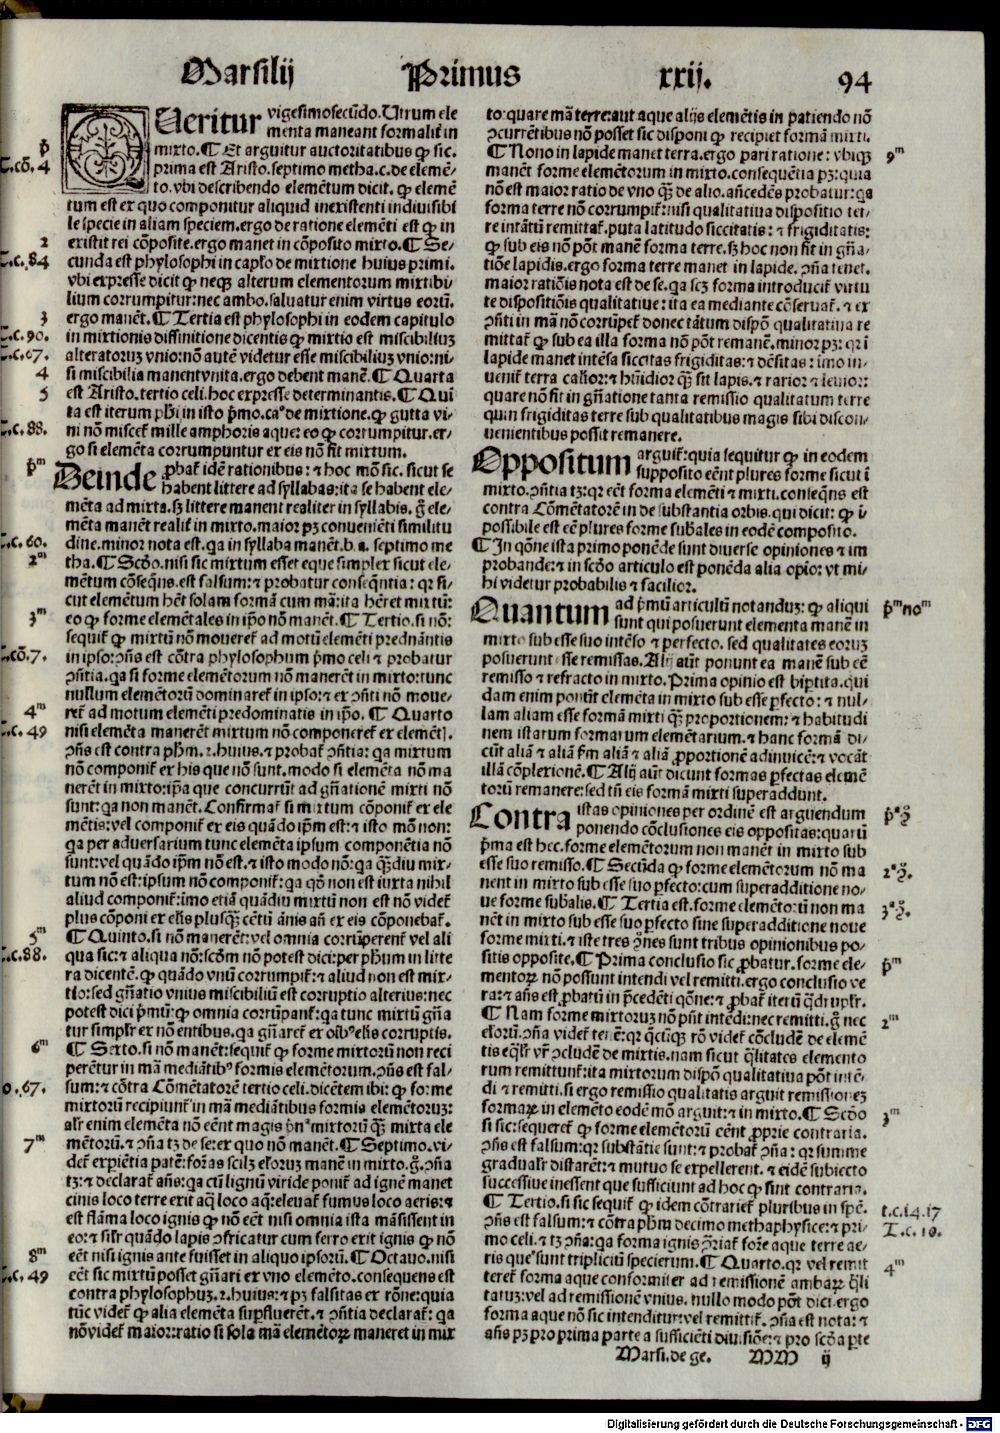 Marsilij Primus xxij. 94
Queritur vigesimosecũdo. Utrum ele
menta maneant formalit̃ in
mixto. ¶ Et arguitur auctoritatibus ꝙ sic.
prima est Aristo. septimo metha. c. de elemẽ⸗
to. vbi describendo elemẽtum dicit. ꝙ elemẽ
tum est ex quo componitur aliquid inexistenti indiuisibi
le specie in aliam speciem. ergo de ratione elemẽti est ꝙ in
existit rei cõposite. ergo manet in cõposito mixto. ¶ Se⸗
cunda est phylosophi in capło de mixtione huius primi.
vbi expresse dicit ꝙ neqꝫ alterum elementorum mixtibi
lium corrumpitur: nec ambo. saluatur enim virtus eorũ.
ergo manẽt. ¶ Tertia est phylosophi in eodem capitulo
in mixtionis diffinitione dicentis ꝙ mixtio est miscibiliuꝫ
alteratoruꝫ vnio: nõ autẽ videtur esse miscibiliuꝫ vnio: ni⸗
si miscibilia manent vnita. ergo debent manẽ. ¶ Quarta
est Aristo. tertio celi. hoc expresse determinantis. ¶ Qui
ta est iterum pħi in isto p̃mo. ca° de mixtione. ꝙ gutta vi⸗
ni nõ miscet̃ mille amphoris aque: eo ꝙ corrumpitur. er⸗
go si elemẽta corrumpuntur ex eis nõ fit mixtum.
Deinde ꝓbat̃ idẽ rationibus: ⁊ hoc mõ sic. sicut se
habent littere ad syllabas: ita se habent ele⸗
mẽta ad mixta. sꝫ littere manent realiter in syllabis. g̃ ele⸗
mẽta manẽt realit̃ in mixto. maior pꝫ conueniẽti similitu
dine. minor nota est. q̃a in syllaba manẽt. b. a. septimo me
tha. ¶ Scđo. nisi sic mixtum esset eque simplex sicut ele⸗
mẽtum cõseq̃ns. est falsum: ⁊ probatur conseq̃ntia: qꝛ si⸗
cut elemẽtum hẽt solam formã cum mã: ita hẽret mixtũ:
eo ꝙ forme elemẽtales in ip̃o nõ manẽt. ¶ Tertio. si nõ:
sequit̃ ꝙ mixtũ nõ moueret̃ ad motũ elemẽti prednãntis
in ipso: ꝯñs est cõtra phylosophum p̃mo celi ⁊ probatur
ꝯñtia. q̃a si forme elemẽtorum nõ manerẽt in mixto: tunc
nullum elemẽtorũ dominaret̃ in ipso: ⁊ ex ꝯñti nõ moue⸗
ret̃ ad motum elemẽti predominatis in ip̃o. ¶ Quarto
nisi elemẽta manerẽt mixtum nõ componeret̃ ex elemẽt̃.
ꝯñs est contra pħm. 2. huius. ⁊ probat̃ ꝯñtia: q̃a mixtum
nõ componit̃ ex his que nõ sunt. modo si elemẽta nõ ma
nerẽt in mixto: ip̃a que concurrũt ad gñationẽ mixti nõ
sunt: q̃a non manẽt. Confirmat̃ si mixtum cõponit̃ ex ele
mẽtis: vel componit̃ ex eis quãdo ip̃m est: ⁊ isto mõ non:
q̃a per aduersarium tunc elemẽta ipsum componẽtia nõ
sunt: vel quãdo ip̃m nõ est. ⁊ isto modo nõ: q̃a q̃ꝫdiu mix⸗
tum nõ est: ipsum nõ componit̃: q̃a qđ non est iuxta nihil
aliud componit̃: imo etiã quãdiu mixtũ non est nõ videt̃
plus cõponi ex elis plusq̃ꝫ cẽtũ ãnis añ ex eis cõponebat̃.
¶ Quinto. si nõ manerẽt: vel omnia corrũperent̃ vel ali
qua sic: ⁊ aliqua nõ: scđm nõ potest dici: per pħum in litte
ra dicentẽ. ꝙ quãdo vnũ corrumpit̃: ⁊ aliud non est mix⸗
tio: sed gñatio vnius miscibiliũ est corruptio alterius: nec
potest dici p̃mũ: ꝙ omnia corrũpant̃: q̃a tunc mixtũ gña
tur simplr̃ ex nõ entibus. q̃a gñaret̃ ex oĩb⁹ elis corruptis.
¶ Sexto. si nõ manẽt: sequit̃ ꝙ forme mixtorũ non reci
perẽtur in mã mediãtib⁹ formis elemẽtorum. ꝯñs est fal⸗
sum: ⁊ cõtra Cõmẽtatorẽ tertio celi. dicẽtem ibi: ꝙ forme
mixtorũ recipiunt̃ in mã mediãtibus formis elemẽtoruꝫ:
alr̃ enim elemẽta nõ eẽnt magis p̃nᵃ mixtorũ q̃ꝫ mixta ele
mẽtorũ. ⁊ ꝯñtia tꝫ de se: ex quo nõ manẽt. ¶ Septimo. vi⸗
det̃ exp̃iẽtia patẽ: for̃as scilꝫ eľoruꝫ manẽ in mixto. g̃. ꝯña
tꝫ: ⁊ declarat̃ añs: q̃a cũ lignũ viride ponit̃ ad ignẽ manet
cinis loco terre exit aq̃ loco aq̃: eleuat̃ fumus loco aeris: ⁊
est flãma loco ignis ꝙ nõ eẽt nisi omnia ista mãsissent in
eo: ⁊ sil̃r quãdo lapis ꝯfricatur cum ferro exit ignis ꝙ nõ
eẽt nisi ignis ante fuisset in aliquo ipsorũ. ¶ Octauo. nisi
eẽt sic mixtũ posset gñari ex vno elemẽto. consequens est
contra phylosophuꝫ. 2. huius: ⁊ pꝫ falsitas ex rõne: quia
tũc videt̃ ꝙ alia elemẽta supr̃fluerẽt. ⁊ ꝯñtia declarat̃: q̃a
nõ videt̃ maior: ratio si sola mã elemẽtoꝝ maneret in mix
to: quare mã terre: aut aque alijs elemẽtis in patiendo nõ
ꝯcurrẽtibus nõ posset sic disponi ꝙ recipiet formã mixti.
¶ Nono in lapide manet terra. ergo pari ratione: vbiqꝫ
manẽt forme elemẽtorum in mixto. consequẽtia pꝫ: quia
nõ est maior ratio de vno q̃ꝫ de alio. añcedẽs probatur: q̃a
forma terre nõ corrumpit̃: nisi qualitatiua dispositio ter⸗
re intãtũ remittat̃. puta latitudo siccitatis: ⁊ frigiditatis:
ꝙ sub eis nõ põt manẽ forma terre. sꝫ hoc non fit in gña⸗
tiõe lapidis. ergo forma terre manet in lapide. ꝯña tenet.
maior ratiõis nota est de se. q̃a scꝫ forma introducit̃ virtu
te dispositiõis qualitatiue: ita ea mediante cõseruat̃. ⁊ ex
ꝯñti in mã nõ corrũpet̃ donec tãtum dispõ qualitatiua re
mittat̃ ꝙ sub ea illa forma nõ põt remanẽ. minor pꝫ: qꝛ ĩ
lapide manet intẽsa siccitas frigiditas: ⁊ dẽsitas: imo in⸗
uenit̃ terra calior: ⁊ hũidior q̃ꝫ sit lapis. ⁊ rarior ⁊ leuior:
quare nõ fit in gñatione tanta remissio qualitatum terre
quin frigiditas terre sub qualitatibus magis sibi discon⸗
uenientibus possit remanere.
Oppositum arguit̃: quia sequitur ꝙ in eodem
supposito eẽnt plures forme sicut ĩ
mixto. ꝯñtia tꝫ: qꝛ eẽt forma elemẽti ⁊ mixti. conseq̃ns est
contra Cõmẽtatorẽ in de substantia orbis. qui dicit: ꝙ ĩ
possibile est eẽ plures forme subales in eodẽ composito.
¶ In qõne ista primo ponẽde sunt diuerse opiniones ⁊ im
probande: ⁊ in scđo articulo est ponẽda alia opio: vt mi⸗
hi videtur probabilis ⁊ facilior.
Quantum ad p̃mũ articulũ notanduꝫ: ꝙ aliqui
sunt qui posuerunt elementa manẽ in
mixto sub esse suo intẽso ⁊ perfecto. sed qualitates eoruꝫ
posuerunt esse remissas. Alij aũt ponunt ea manẽ sub eẽ
remisso ⁊ refracto in mixto. Prima opinio est bip̃tita. qui
dam enim ponũt elemẽta in mixto sub esse p̃fecto: ⁊ nul⸗
lam aliam esse formã mixti q̃ꝫ proportionem: ⁊ habitudi
nem istarum formarum elemẽtarium. ⁊ hanc formã di⸗
cũt aliã ⁊ aliã fm̃ aliã ⁊ aliã ꝓportionẽ adinuicẽ: ⁊ vocãt
illã cõplexionẽ. ¶ Alij aũt dicunt formas p̃fectas elemẽ
torũ remanere: sed tñ eis formã mixti superaddunt.
Contra istas opiniones per ordinẽ est arguendum
ponendo cõclusiones eis oppositas: quarũ
p̃ma est hec. forme elemẽtorum non manẽt in mixto sub
esse suo remisso. ¶ Secũda ꝙ forme elemẽtorum nõ ma
nent in mixto sub esse suo p̃fecto: cum superadditione no⸗
ue forme subalis. ¶ Tertia est. forme elemẽtorũ non ma
nẽt in mixto sub esse suo perfecto sine superadditione noue
forme mixti. ⁊ iste tres ꝯ̃nes sunt tribus opinionibus po⸗
sitis opposite. ¶ Prima conclusio sic ꝓbatur. forme ele⸗
mentoꝝ nõ possunt intendi vel remitti. ergo conclusio ve
ra: ⁊ añs est ꝓbatũ in p̃cedẽti qõne: ⁊ ꝓbat̃ iterũ q̃druplr̃.
¶ Nam forme mixtoruꝫ nõ pñt intẽdi: nec remitti. g̃ nec
eľorũ. ꝯña videt̃ tenẽ: qꝛ q̃cũqꝫ rõ videt̃ cõcludẽ de elemẽ
tis eq̃lr̃ vr̃ ꝯcludẽ de mixtis. nam sicut q̃litates elemento
rum remittunt̃: ita mixtorum dispõ qualitatiua põt intẽ⸗
di ⁊ remitti. si ergo remissio qualitatis arguit remissionẽ
formaꝝ in elemẽto eodẽ mõ arguit: ⁊ in mixto. ¶ Scđo
si sic: sequeret̃ ꝙ forme elemẽtorũ eẽnt ꝓprie contraria.
ꝯñs est falsum: qꝛ substãtie sunt: ⁊ probat̃ ꝯña: qꝛ summe
graduals̃r distarẽt: ⁊ mutuo se expellerent. ⁊ eidẽ subiecto
successiue inessent que sufficiunt ad hoc ꝙ sint contraria.
¶ Tertio. si sic sequit̃ ꝙ idem cõtrariet̃ pluribus in spẽ.
ꝯñs est falsum: ⁊ cõtra pħm decimo methaphysice: ⁊ pri⸗
mo celi. ⁊ tꝫ ꝯña: q̃a forma ignis ꝯ̃riat̃ for̃e aque terre ae⸗
ris que sunt triplicιũ specierum. ¶ Quarto. qꝛ vel remit
teret̃ forma aque conformiter ad remissionẽ ambaꝝ q̃li
tatuꝫ: vel ad remissionẽ vnius. nullo modo põt dici. ergo
forma aque nõ sic intenditur: vel remittit̃. ꝯña est nota: ⁊
añs pꝫ pro prima parte a sufficiẽti diuisiõe: ⁊ pro scđa p̃te
Marsi. de ge. MM ij
p̃
T.cõ. 4
2
T.c. 84
3
T.c. 90.
T.c. 67.
4
5
T.c. 88.
p̃ᵐ
T.c. 60.
2ᵐ
3ᵐ
T.cõ. 7.
4ᵐ
T.c. 49
5ᵐ
T.c. 88.
6ᵐ
o. 67.
7ᵐ
8ᵐ
T.c. 49
9ᵐ
p̃ᵐ noᵐ
p̃ᵃ ꝯ̃
2ᵃ ꝯ̃.
3ᵃ ꝯ̃.
p̃ᵐ
2ᵐ
3ᵐ
t.c. 14. 17
T.c. 10.
4ᵐ
Digitalisierung gefördert durch die Deutsche Forschungsgemeinschaft - DFG